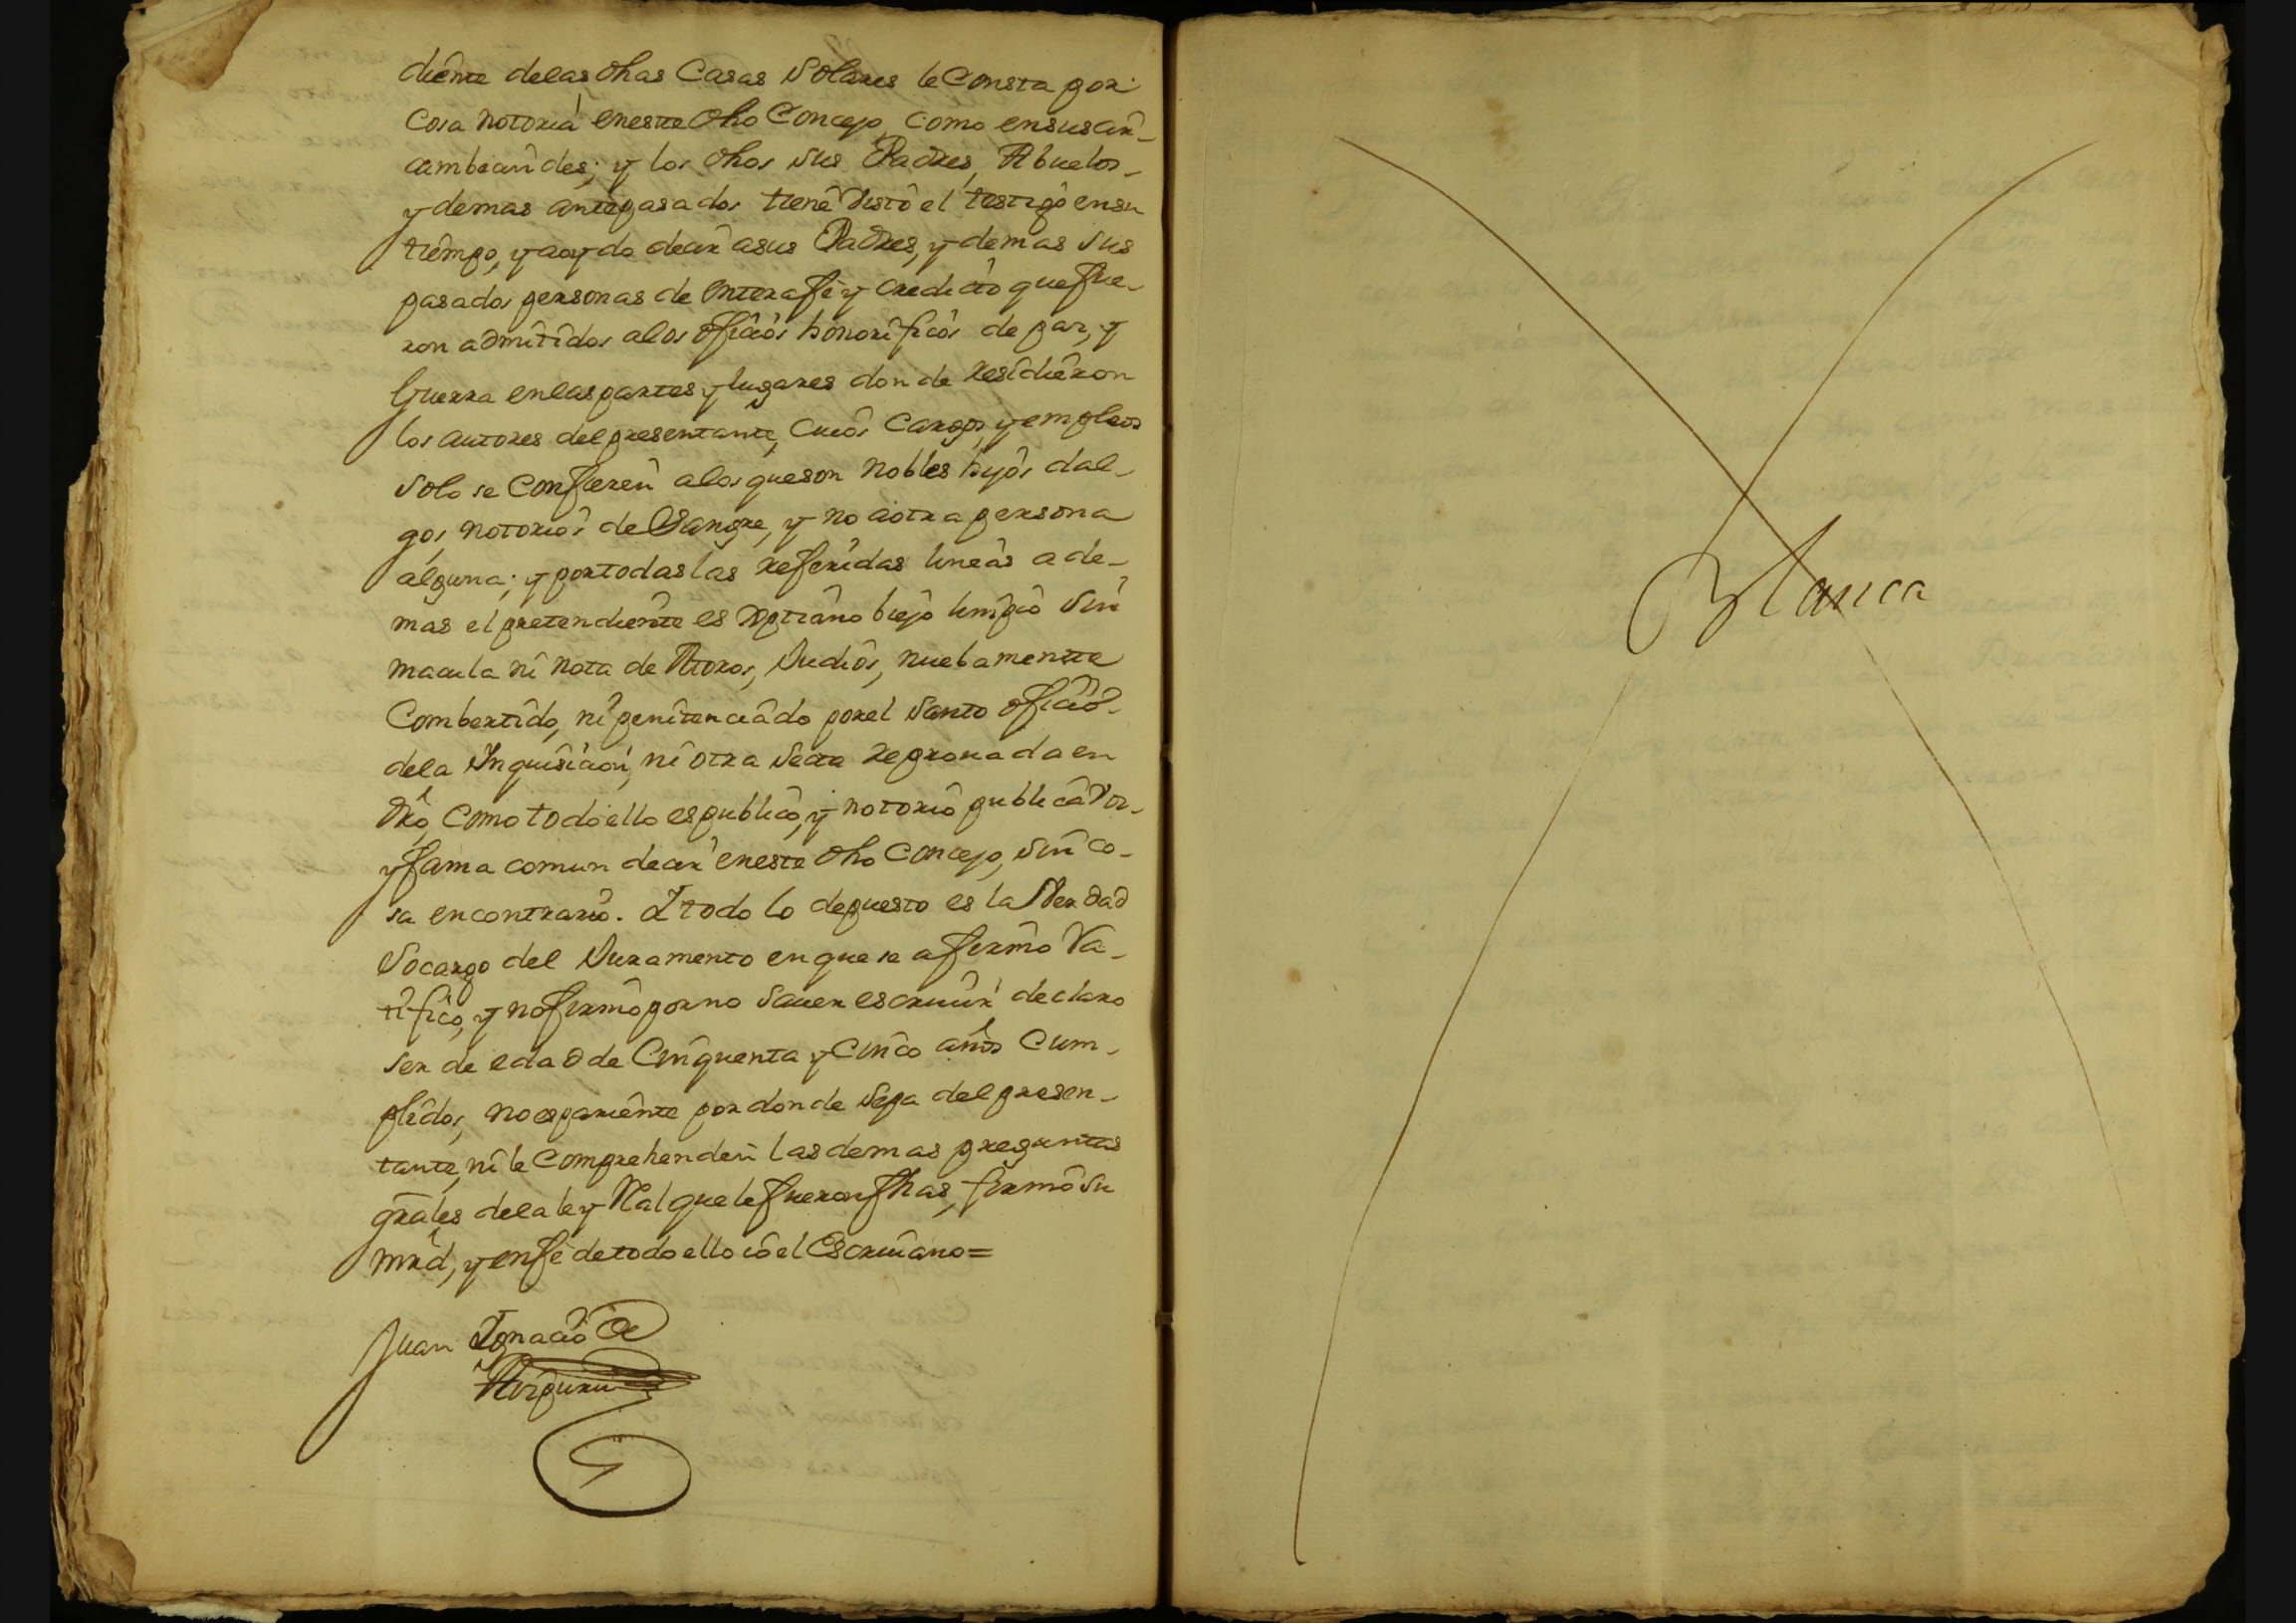 diente delas dhas Casas Solares le Consta por
Cosa notoria eneste dho Concejo, como ensus cir-
cumbecindes; y los dhos sus Padres, Abuelos-
y demas antepasados tiene Visto el testigo ensu
tiempo, y aoydo decir asus Padres, y demas sus
pasados personas de entera fe y credicto que fue-
ron admitidos alos oficios honorificos de paz, y
Guerra enlas partes y lugares donde residieron
los autores del presentante, Cuios Cargos, y empleos
solo se Confieren alos que son nobles hijos dal-
gos, notorios de Sangre, y no aotra persona
alguna; y por todas las referidas lineas ade-
mas el pretendiente es xptiano biejo limpio sin
macula ni nota de Moros, Judios, nuebamente
Combertido, ni penitenciado porel Santo oficio-
dela Inquisicion, ni otra Secta reprouada en
dro, Como todo ello es publico, y notorio publica Voz-
y fama comun decir eneste dho Concejo, sin co-
sa encontrario. I todo lo depuesto es la Verdad
Socargo del Juramento en que se afirmo Ra-
tifico, y nofirmo por no Sauer escriuir declaro
ser de edad de Cinquenta y Cinco años Cum-
plidos, no es pariente por donde Sepa del presen-
tante, ni le Comprehenden las demas preguntas
grales dela ley Real que le fueron fhas, firmo su
mrd, y enfe de todo ello io el Escriuano=
Juan Ignacio de
Blanca